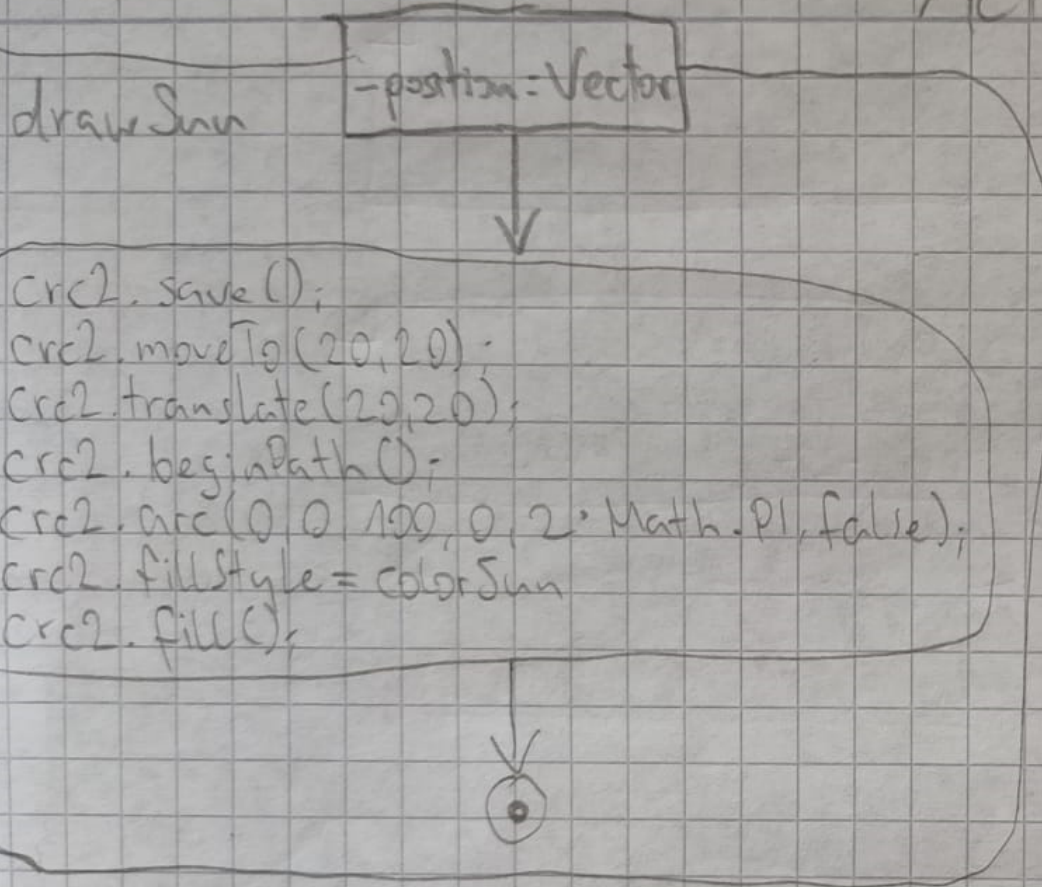 -position: Vector
drawSun
crc2.save();
crc2.moveTo(20,20);
crc2.translate(20,20);
crc2.beginPath();
crc2.arc(0,0,100,0,2·Math.PI,false);
crc2.fillStyle=colorSun
crc2.fill();